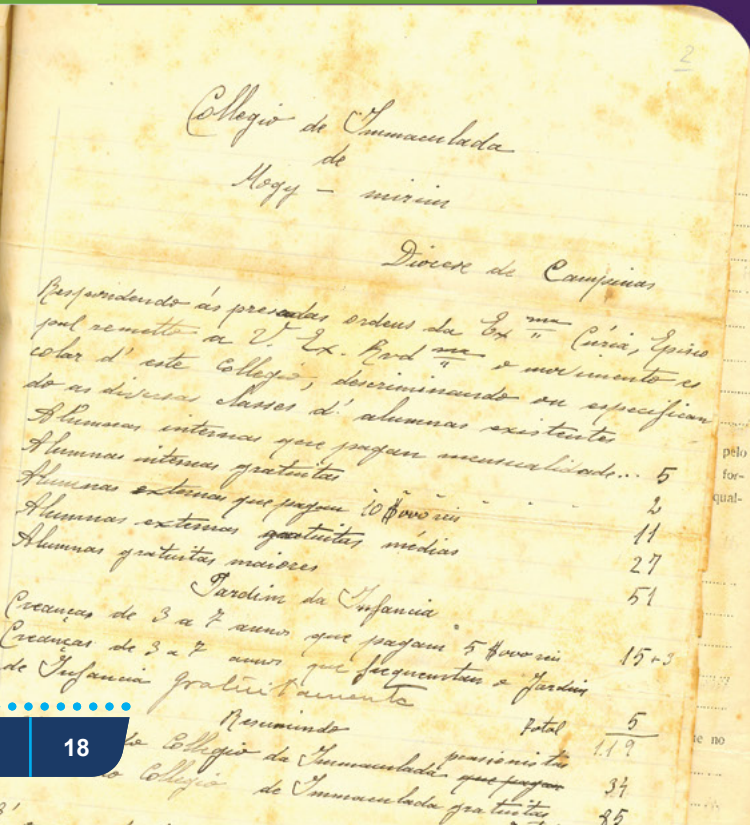 2
Collegio de Immaculada
de
Mogy - mirim
Diocese de Campinas
Respondendo ás presadas ordens da Ex ma Cúria, Episco
pal remetto a V. Ex. Rvd ma o movimento es
colar d' este Collegio, descriminando ou especifican
do as diversas classes d' alumnas existentes
Alumnas internas que pagam mensualidade... 5
Alumnas internas gratuitas 2
Alumnas externas que pagam 10$000 reis 11
Alumnas externas gratuitas médias 27
Alumnas gratuitas maiores 51
Jardim da Infancia
Creanças de 3 a 7 annos que pagam 5$000 reis 15+3
Creanças de 3 a 7 annos que frequentam o Jardim
de Infancia gratuitamente 5
Total 119
Resumindo
do Collegio da Immaculada pensionistas que pagam 34
do Collegio de Immaculada gratuitas 85
18
pelo
for-
qual-
e no